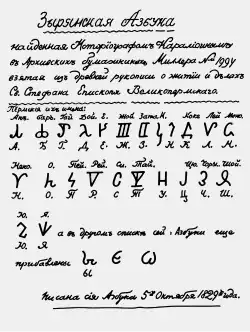 Зырянская Азбука
найденная Исторiографомъ Карамзинымъ
въ Архивскихъ бумагохъ Г. Миллера № 199 у
взятая изъ древней рукописи о житiи и дѣлахъ
Св. Стефана Епископа Великопермскаго.
Пермскiя ихъ имена:
Анъ. Гай. Дой. Е. Жой. Зата. И. Коке. Лей. Мено.
А. Б. Г. Д. Е. Ж. З. I. К. Л. М.
Нено. О. Пей. Рей. Си. Тай. Цю. Черы. Шой.
Н. О. П. Р. С. Т. У. Ц. Ч. Ш.
Ю. Я.
а въ другомъ спискѣ сей Азбуки еще
Ю Я
прибавлены Ꙑ Є Ѡ
Ы
Писана сiя Азбука 5го Октября 1829го года.